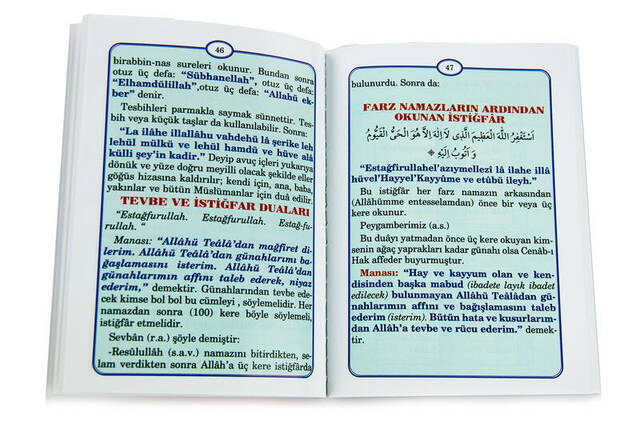 46
birabbin-nas sureleri okunur. Bundan sonra
otuz üç defa: "Sübhanellah", otuz üç defa:
"Elhamdülillah",otuz üç defa: "Allahü ek-
ber" denir.
Tesbihleri parmakla saymak sünnettir. Tes-
bih veya küçük taşlar da kullanılabilir. Sonra:
"La ilâhe illallâhu vahdehü lâ şerike leh
lehül mülkü ve lehül hamdü ve hüve alâ
külli şey'in kadir." Deyip avuç içleri yukarıya
dönük ve yüze doğru meyilli olacak şekilde eller
göğüs hizasına kaldırılır; kendi için, ana, baba,
yakınlar ve bütün Müslümanlar için duâ edilir.
TEVBE VE İSTİĞFAR DUALARI
"Estağfurullah. Estağfurullah. Estağ-fu-
rullah. "
Manası: "Allâhü Teâlâ'dan mağfiret di-
lerim. Allâhü Teâlâ'dan günahlarımı ba-
ğaşlamasını isterim. Allâhü Teâlâ'dan
günahlarımın affını taleb ederek, niyaz
ederim," demektir. Günahlarından tevbe ede-
cek kimse bol bol bu cümleyi , söylemelidir. Her
namazdan sonra (100) kere böyle söylemeli,
istiğfar etmelidir.
Sevbân (r.a.) şöyle demiştir:
-Resûlullâh (s.a.v.) namazını bitirdikten, se-
lam verdikten sonra Allah'a üç kere istiğfârda
47
bulunurdu. Sonra da:
FARZ NAMAZLARIN ARDINDAN
OKUNAN İSTİĞFÂR
اَسْتَغْفِرُ اللّٰهَ الْعَظِيمَ الَّذِى لَا اِلٰهَ اِلَّا هُوَ الْحَىُّ الْقَيُّومُ
وَ اَتُوبُ اِلَيْهِ
"Estağfirullahel'azıymellezi lâ ilahe illâ
hüvel'Hayyel'Kayyûme ve etûbü ileyh."
Bu istiğfâr her farz namazın arkasından
(Allâhümme entesselamdan) önce bir veya üç
kere okunur.
Peygamberimiz (a.s.)
Bu duâyı yatmadan önce üç kere okuyan kim-
senin ağaç yaprakları kadar günahı olsa Cenâb-ı
Hak affeder buyurmuştur.
Manası: "Hay ve kayyum olan ve ken-
disinden başka mabud (ibadete layık ibadet
edilecek) bulunmayan Allâhü Teâlâdan gü-
nahlarımın affını ve bağışlamasını taleb
ederim (isterim). Bütün hata ve kusurlarım-
dan Allâh'a tevbe ve rücu ederim." demek-
tir.